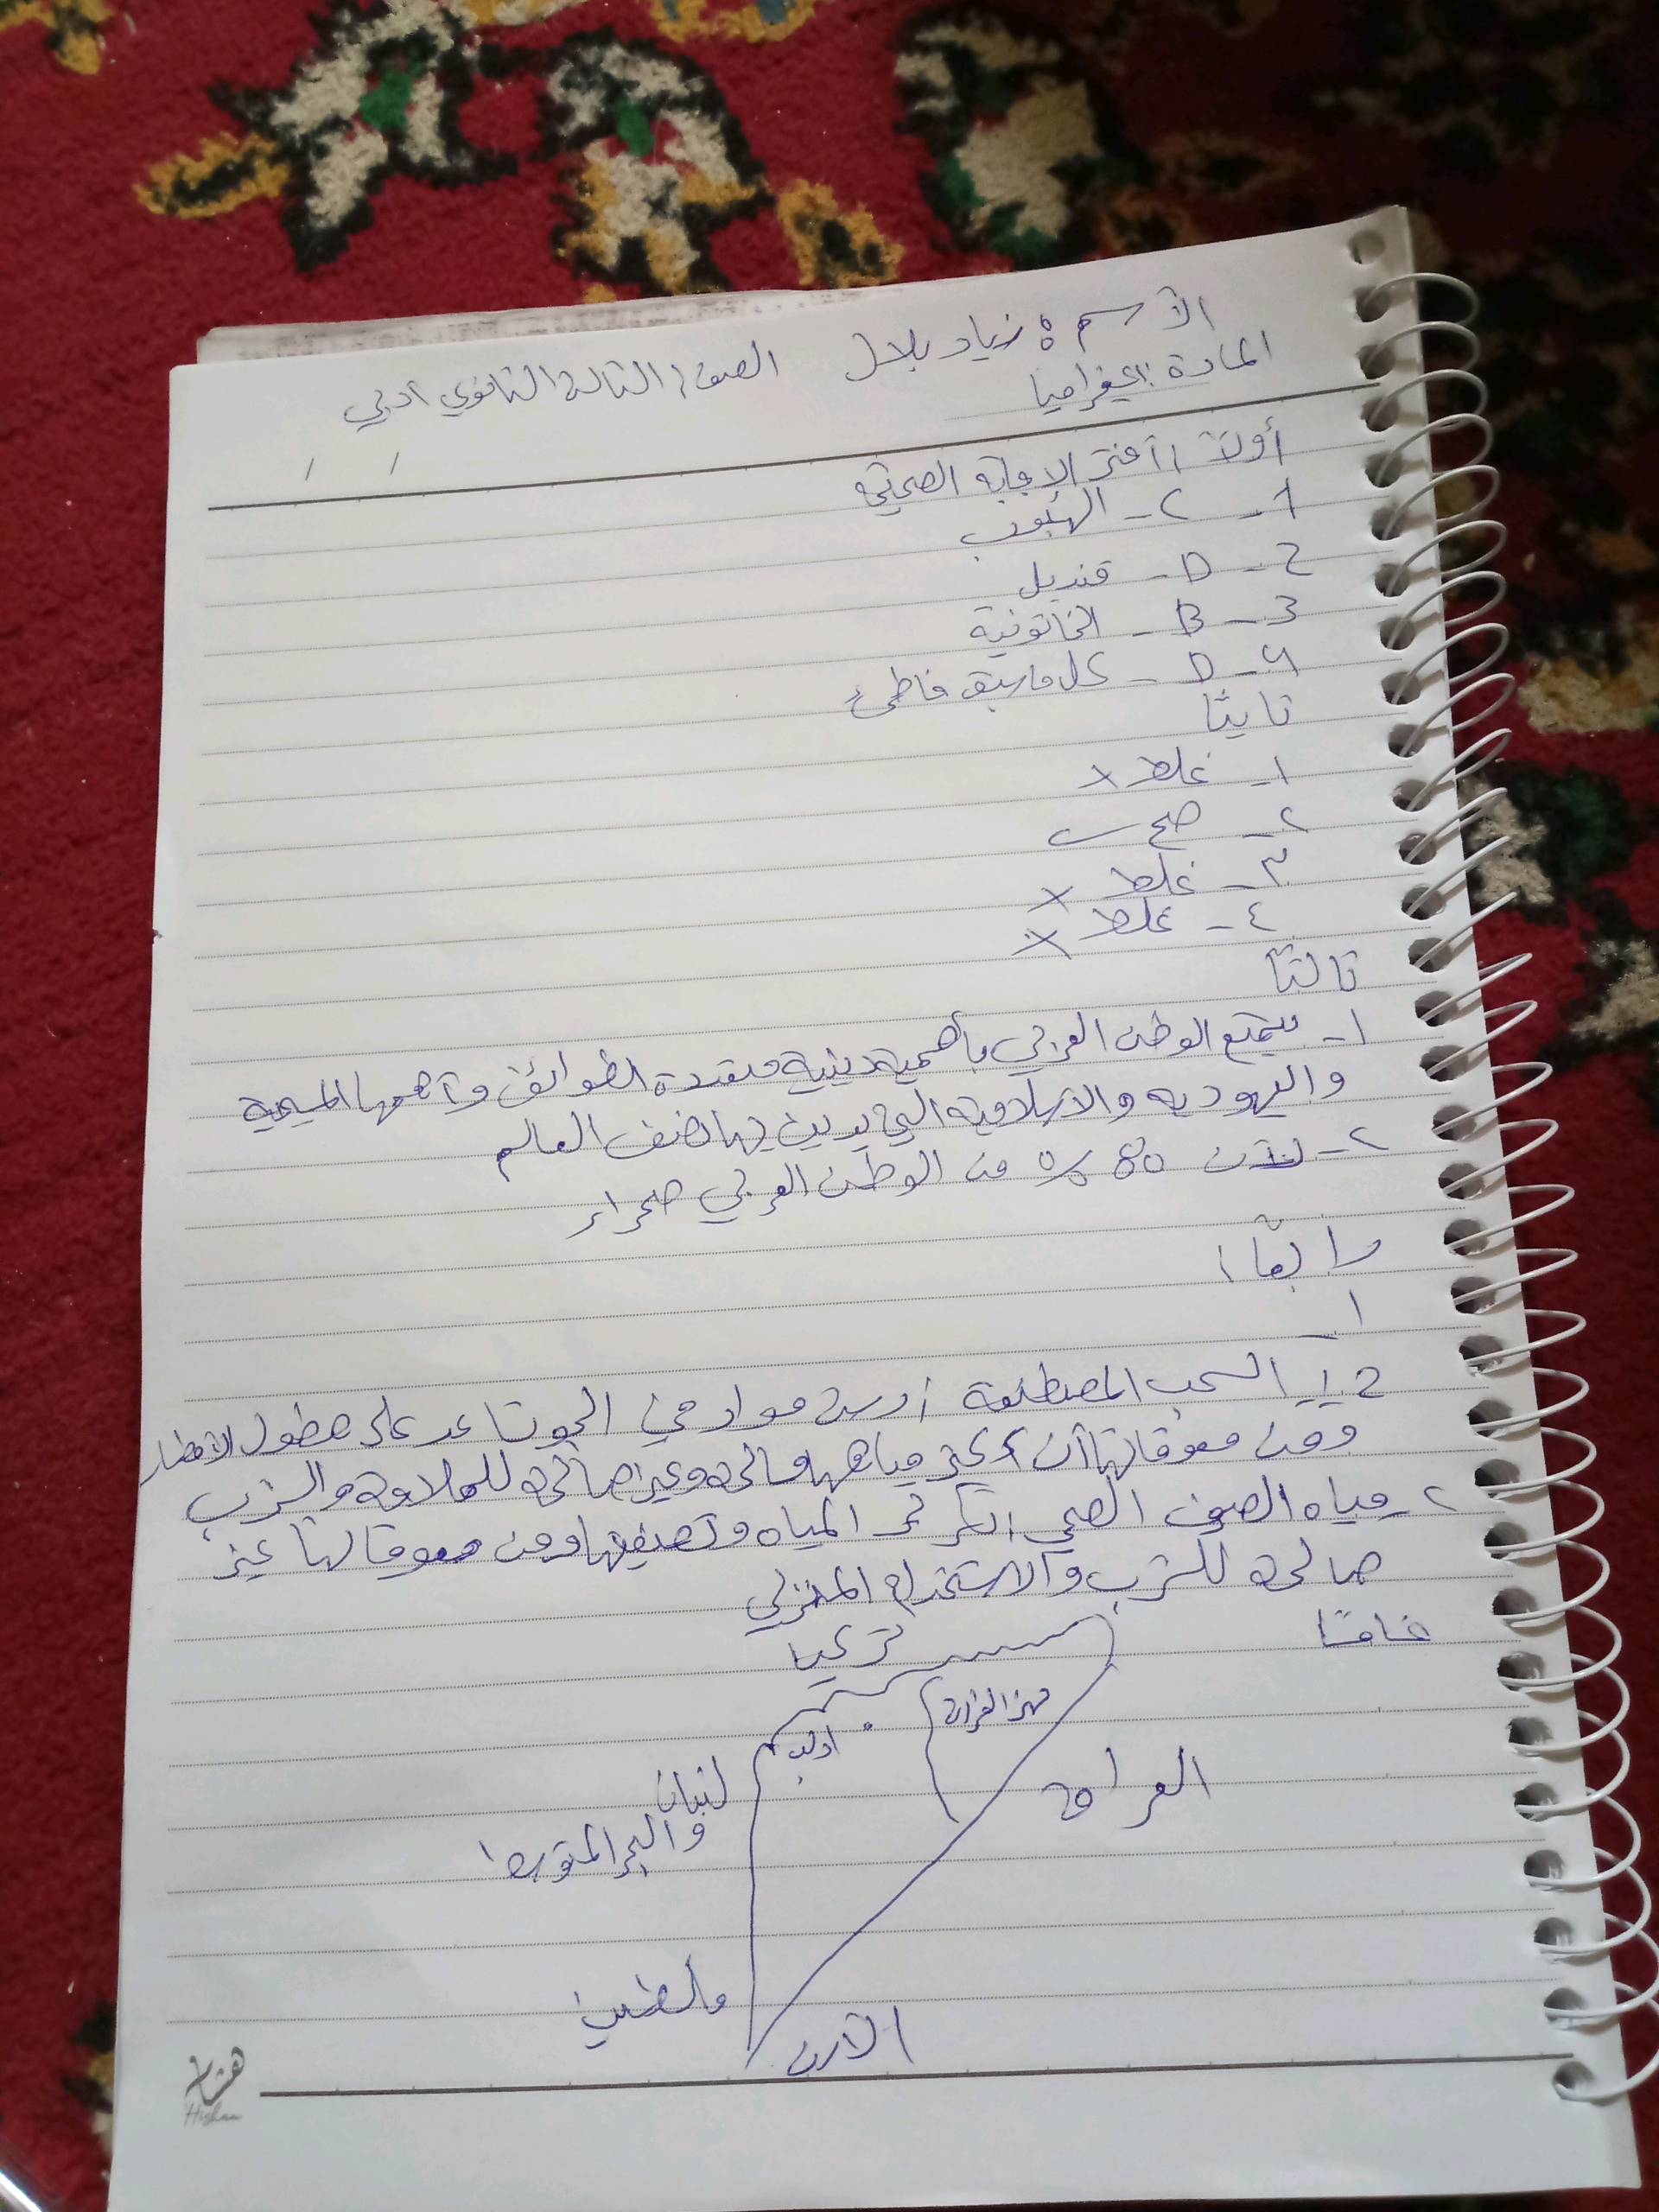 الأسم: زياد بلال الصف: الثالث الثانوي ادبي
المادة: الجغرافيا
/ /
أولاً: أختر الإجابة الصحيحة
1- C- الهبوب
2- D- قنديل
3- B- الخاتونية
4- D- كل ماسبق خاطئ
ثانيًا
١- غلط ×
٢- صح
٣- غلط ×
٤- غلط ×
ثالثًا
١- يتمتع الوطن العربي بأهمية دينية متعددة الطوائف وأهمها المسيحية
واليهودية والأسلامية التي يدين بها نصف العالم
٢- لأن 80% من الوطن العربي صحراء
رابعًا:
١-
2- 1- السحب المصطنعة: رش مواد في الجو تساعد على هطول الأمطار
ومن معوقاتها أن أكثر مياهها مالحة وغير صالحة للملاحة والشرب
٢- مياه الصرف الصحي: تكرير المياه وتصفيتها ومن معوقاتها غير
صالحة للشرب والأستخدام المنزلي
خامسًا
تركيا
نهر الفرات
ادلب
العراق
لبنان
والبحر المتوسط
فلسطين
الأردن
هشام
Hisham